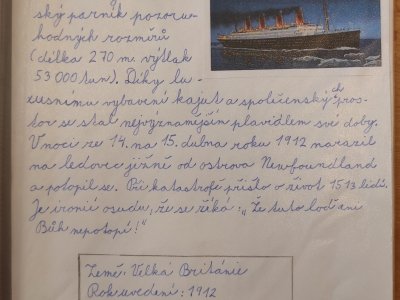 ský parník pozoru-
hodných rozměrů
(délka 270 m. výtlak
53 000 tun). Díky lu-
xusnímu vybavení kajut a společenských pros-
tor se stal nejvýznamějším plavidlem své doby.
V noci ze 14. na 15. dubna roku 1912 narazil
na ledovce jižně od ostrova Newfoundland
a potopil se. Při katastrofě přišlo o život 1513 lidí.
Je ironií osudu, že se říká: "Že tuto loď ani
Bůh nepotopí!"
Země: Velká Británie
Rok uvedení: 1912